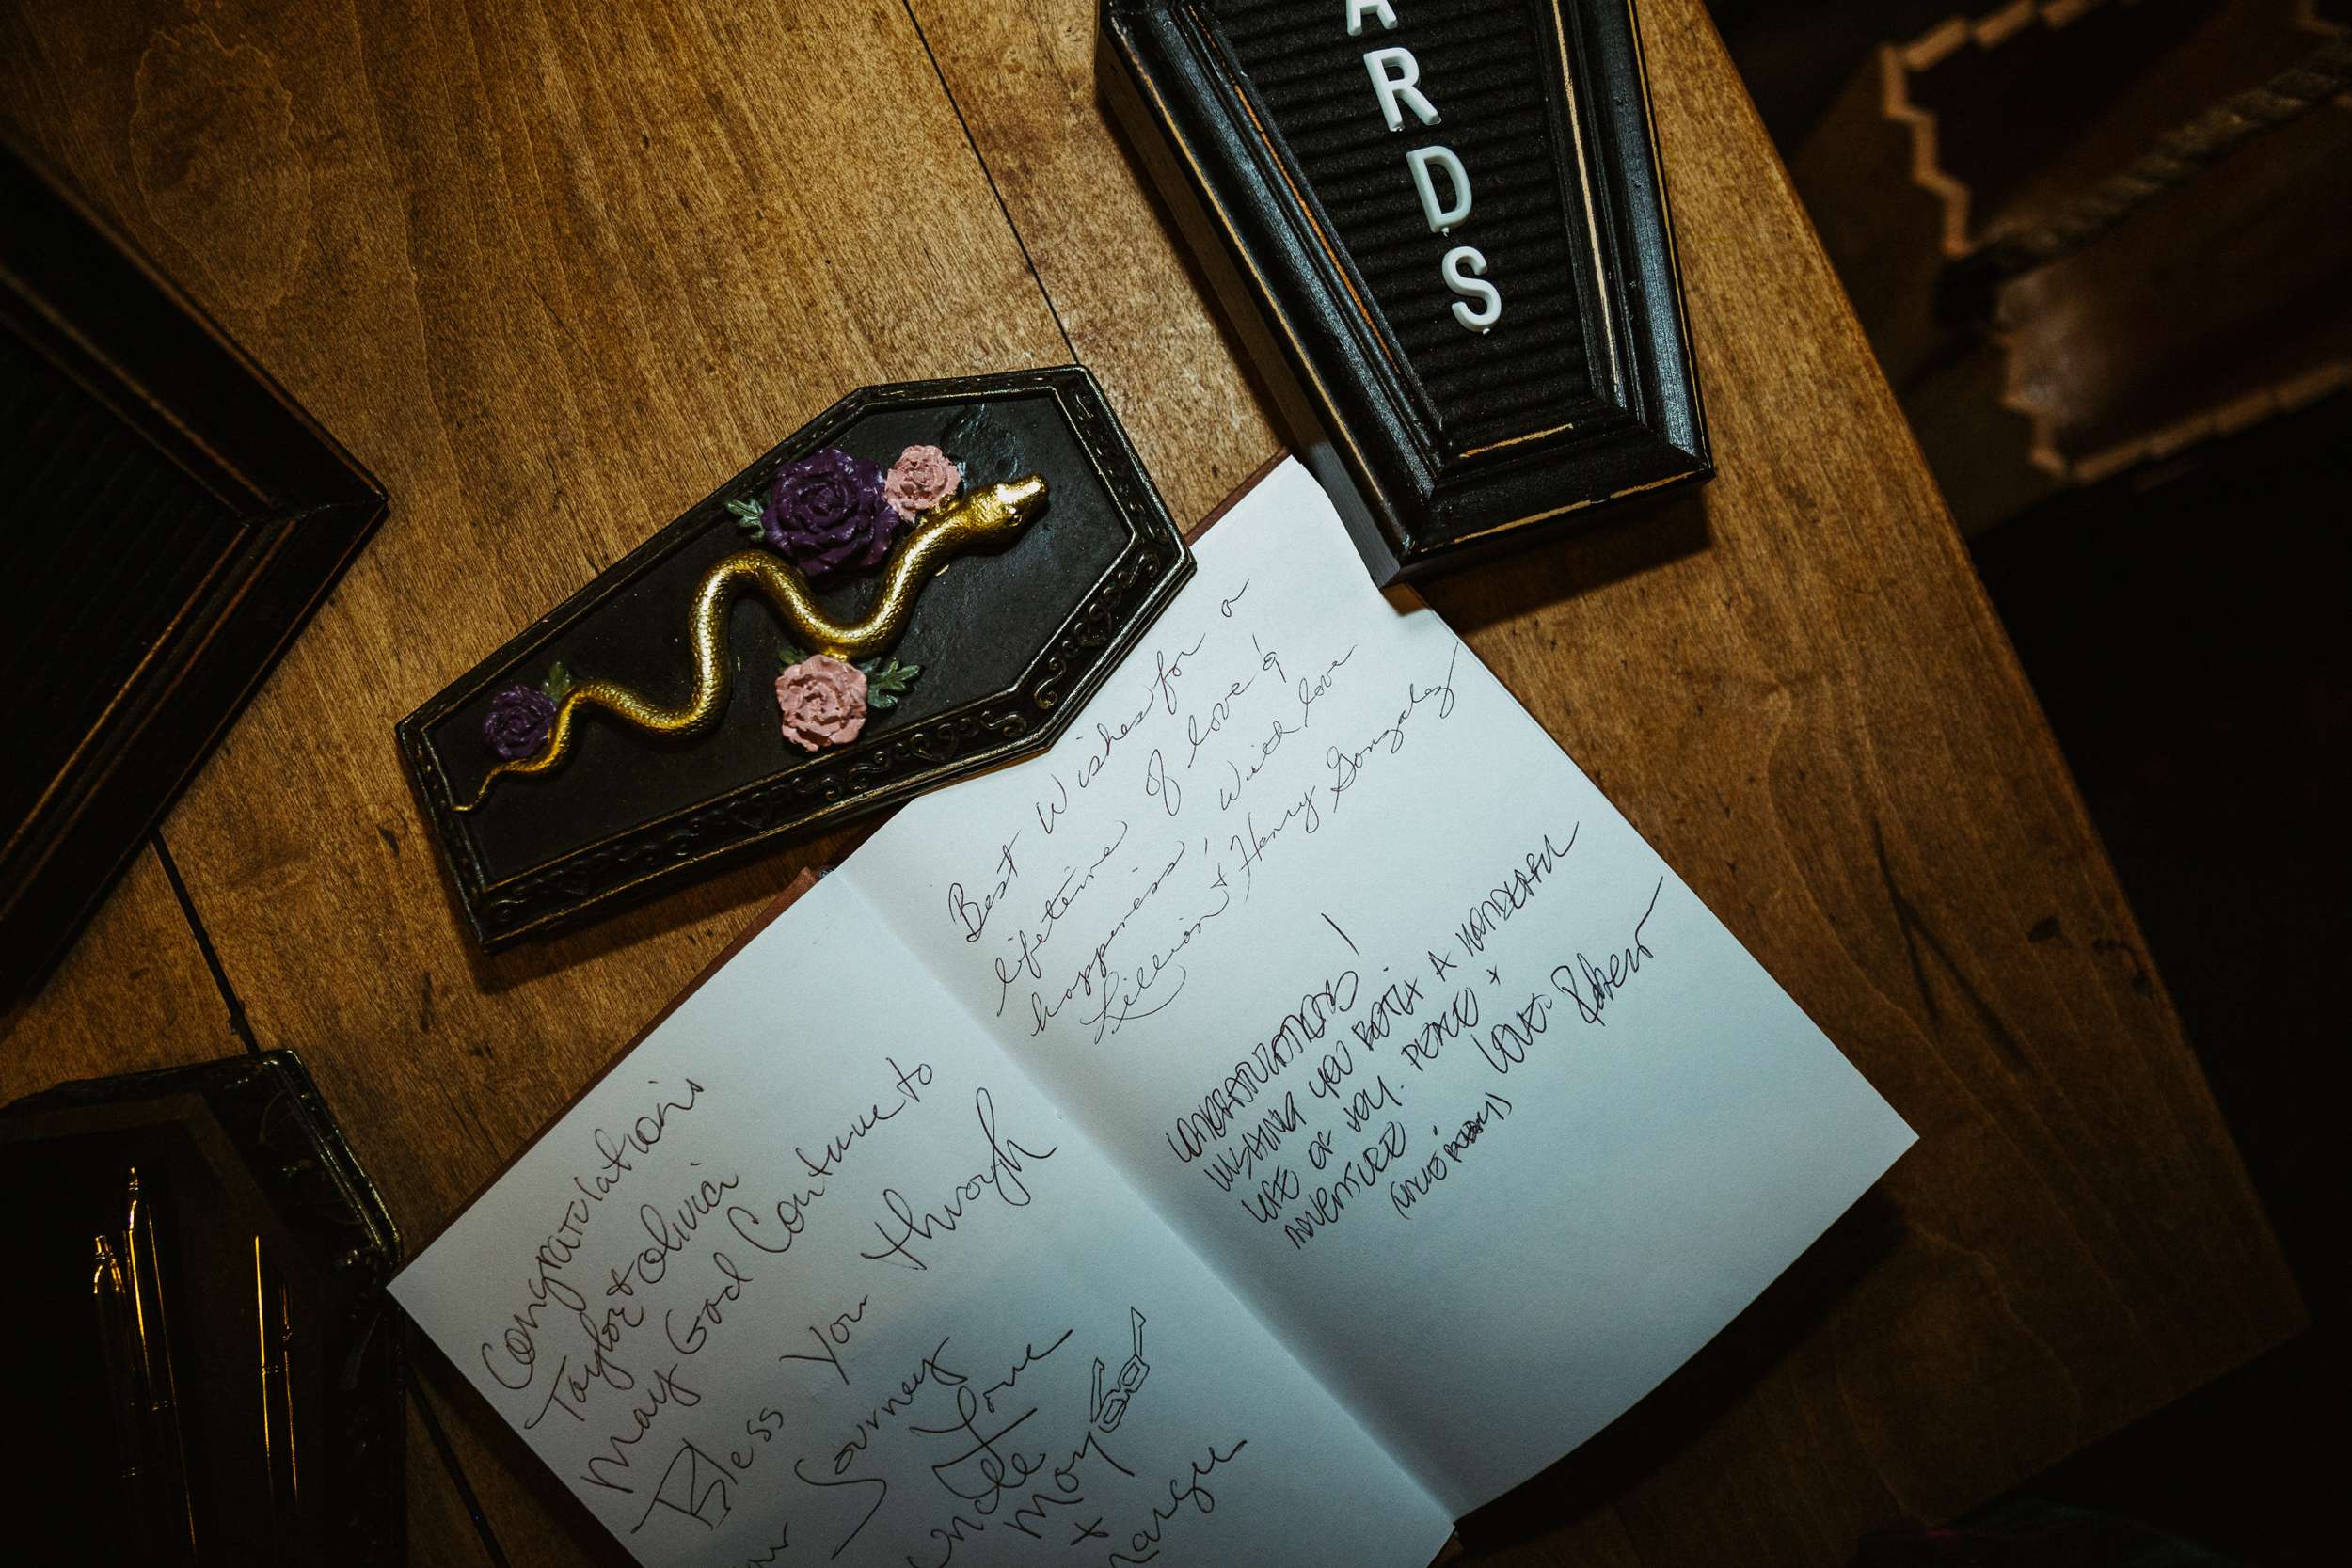 ARDS
Congratulations
Taylor & Olivia
May God Continue to
Bless you through
Journey
Love
Best Wishes for a
lifetime of love &
happiness! With love
Lillian & Henry Gonzalez
CONGRATULATIONS!
WISHING YOU BOTH A WONDERFUL
LIFE OF JOY. PEACE +
ADVENTURE LOVE. Robert